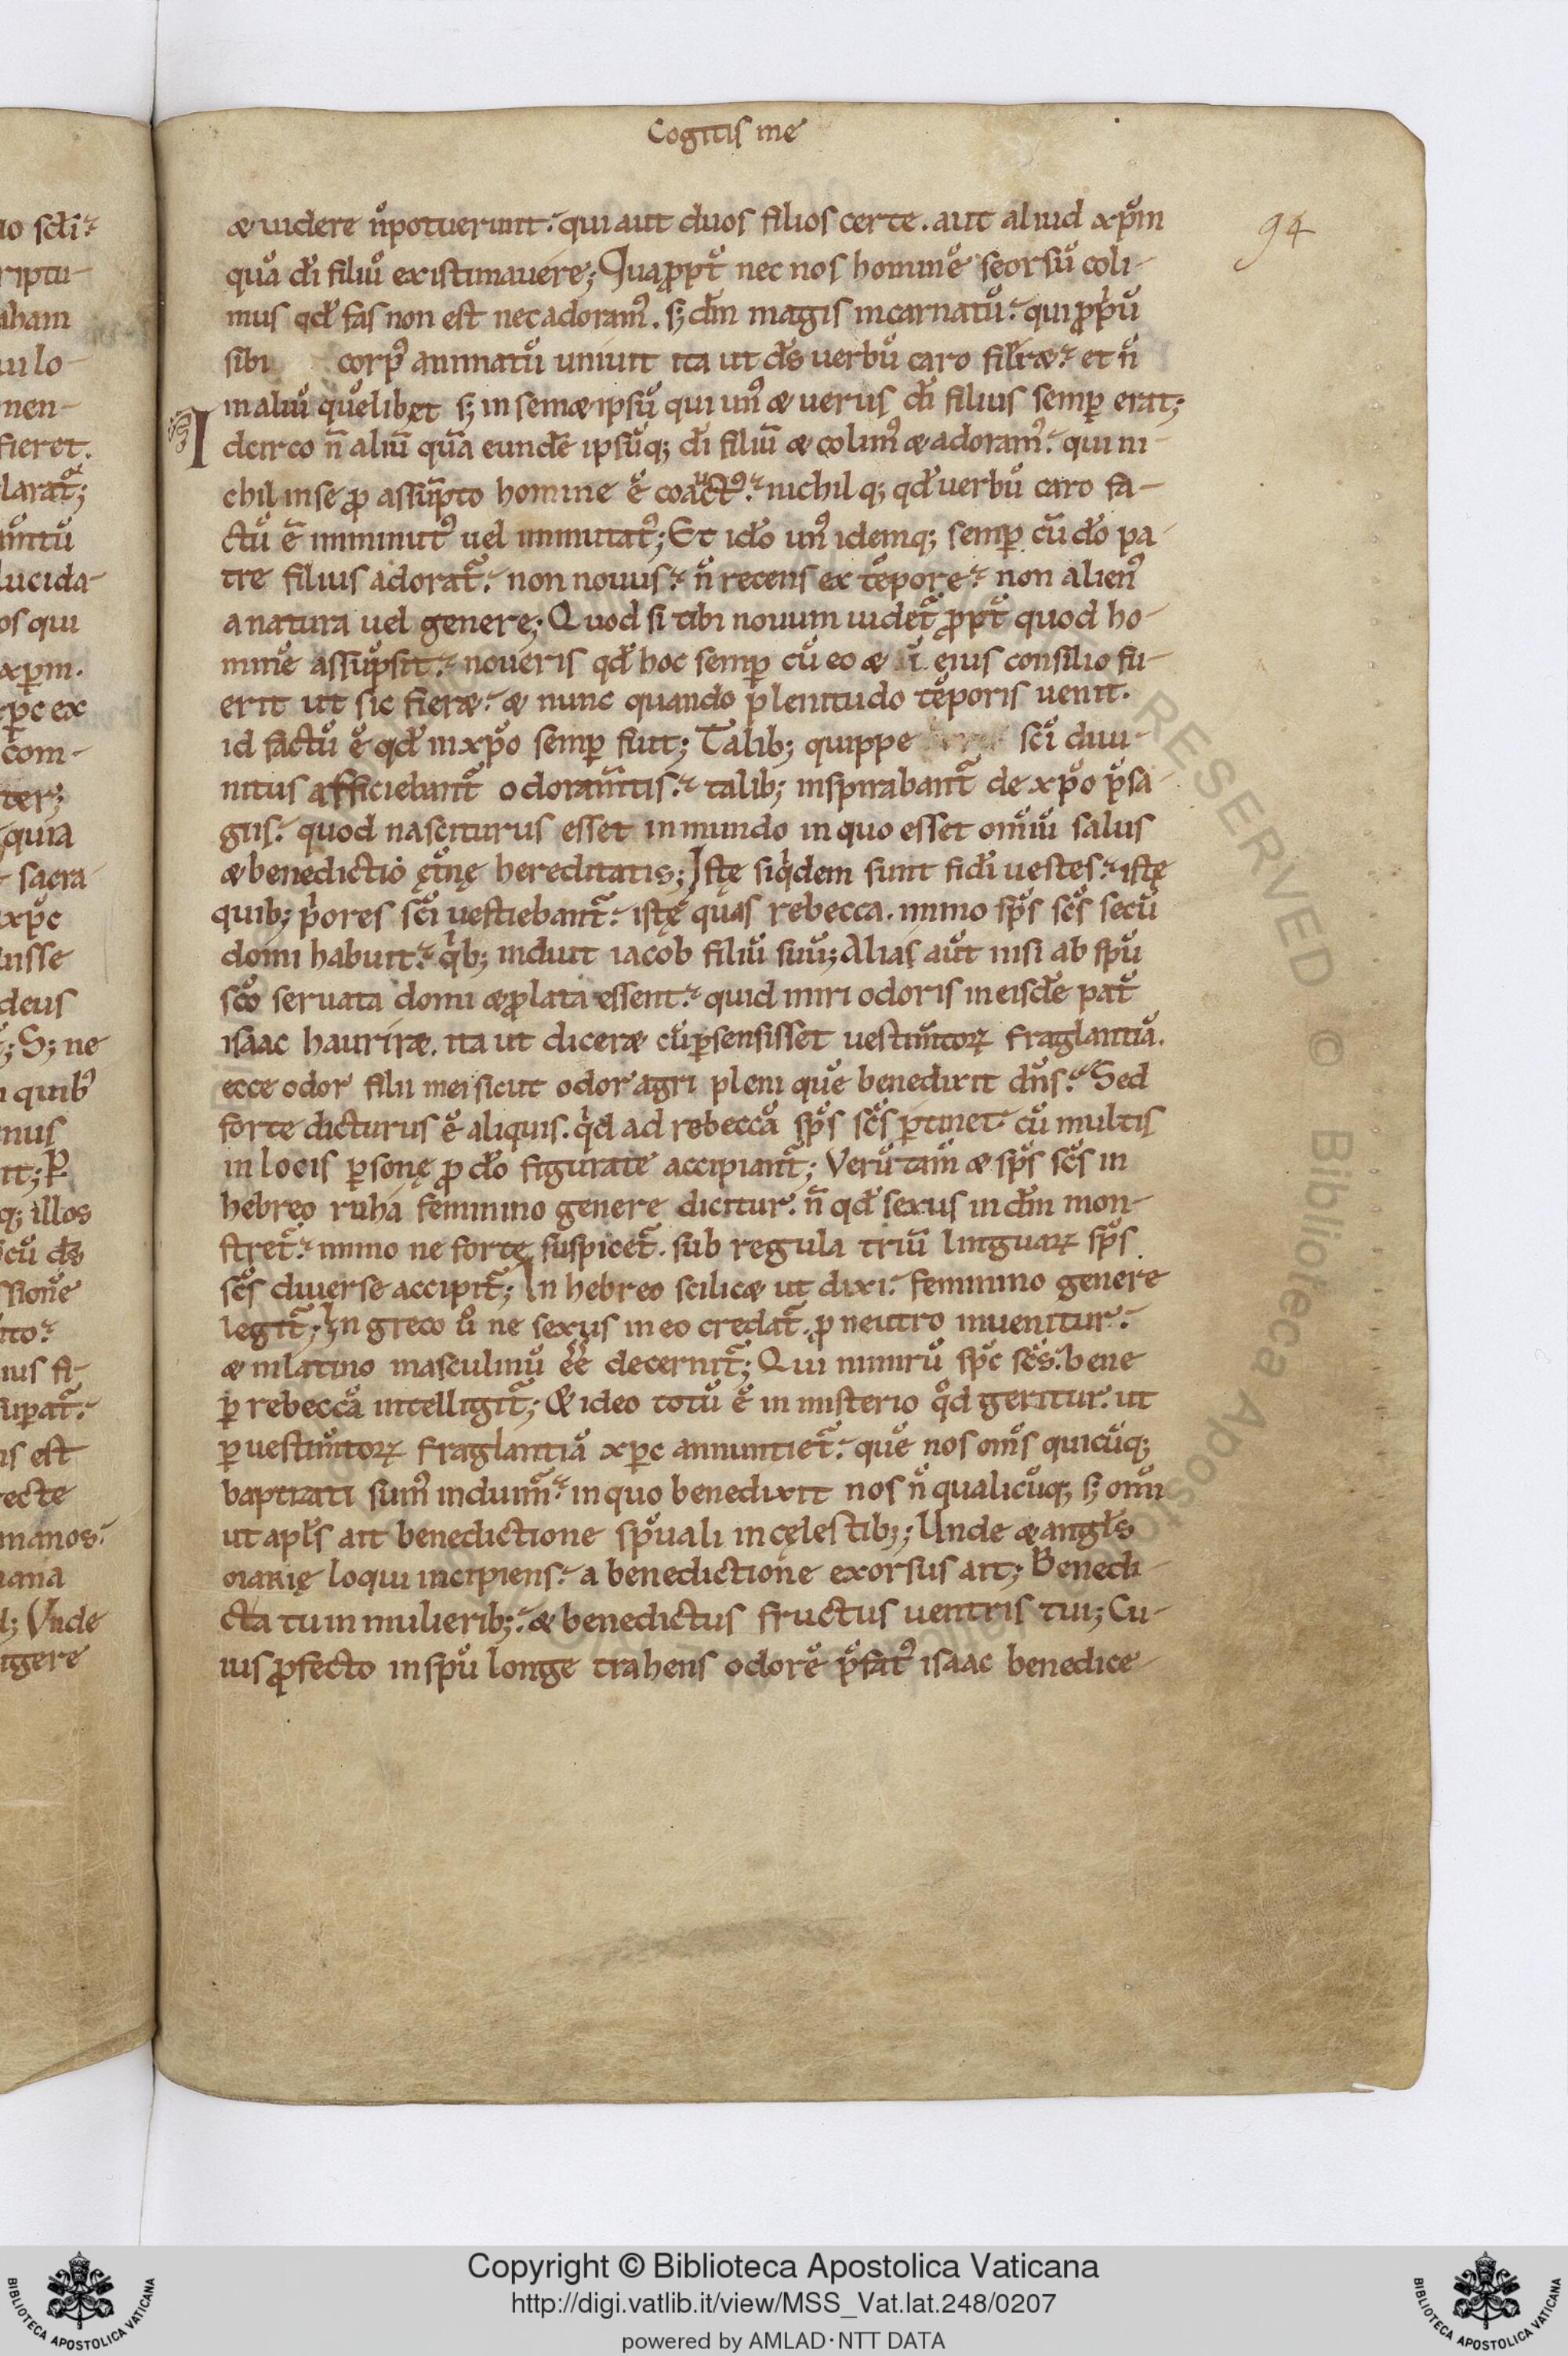 Cogitis me
94
æ uidere n̄ potuerunt. qui aut duos filios certe. aut aliud xp̄m
quā dī filiū existimauere; Quapropt̄ nec nos hominē seorsū coli-
mus qd̄ fas non est nec adoram᷒. sꝫ dm̄ magis incarnatū. qui ꝓpriū
sibi corp᷒ animatū uniuit ita ut ds̄ uerbū caro fieræ. et n̄
in aliū quēlibet sꝫ in semæipsū qui un᷒ æ uerus dī filius semꝑ erat;
Idcirco n̄ aliū quā eundē ipsūqꝫ dī filiū æ colim᷒ æ adoram᷒. qui ni-
chil in se ꝓ assūpto homine ē coauct᷒. nichilqꝫ qd̄ uerbū caro fa-
ctū ē imminut᷒ uel immutat᷒; Et ido un᷒ idemqꝫ semꝑ cū dō pa-
tre filius adorat̄. non nouus. n̄ recens ex tēpore. non alien᷒
a natura uel genere; Quod si tibi nouum uidet̄ propt̄ quod ho-
minē assūpsit. noueris qd̄ hoc semꝑ cū eo æ ī eius consilio fu-
erit ut sic fieræ. æ nunc quando plenitudo tēporis uenit.
id factū ē qd̄ in xp̄o semꝑ fuit; Talibꝫ quippe scī diui-
nitus afficiebant̄ odoram̄tis. talibꝫ inspirabant̄ de xp̄o p̄sa-
giis. quod nasciturus esset in mundo in quo esset om̄iū salus
æ benedictio ęt̄nę hereditatis; Istę siqͥdem sunt fidī uestes. istę
quibꝫ pͥores scī uestiebant̄. istę quas rebecca. immo sp̄s sc̄s secū
domi habuit. qͥbꝫ induit iacob filiū suū; Alias aūt nisi ab sp̄u
sc̄o seruata domi æ ꝓlata essent. quid miri odoris in eisdē pat̄
isaac hauriræ. ita ut diceræ cū p̄sensisset uestim̄torꝝ fraglantiā.
ecce odor filii mei sicut odor agri pleni quē benedixit dn̄s. Sed
forte dicturus ē aliquis. qͥd ad rebeccā sp̄s sc̄s ꝑtinet. cū multis
in locis ꝑsonę ꝓ dō figurate accipiant̄; Verūtam̄ æ sp̄s sc̄s in
hebreo ruha feminino genere dicitur. n̄ qd̄ sexus in dm̄ mon-
stret̄. immo ne forte suspicet̄. sub regula triū linguarꝝ sp̄s
sc̄s diuerse accipit̄; In hebreo scilicæ ut dixi. feminino genere
legit̄; In greco ū ne sexus in eo credat̄. ꝓ neutro inuenitur.
æ in latino masculinū ēē decernit̄; Qui nimirū sp̄c sc̄s. bene
ꝑ rebeccā intelligit̄; & ideo totū ē in misterio qͦd geritur. ut
ꝑ uestim̄torꝝ fraglantiā xp̄c annuntiet̄. quē nos om̄s quicūqꝫ
baptizati sum᷒ induim᷒. in quo benedixit nos n̄ qualicūqꝫ sꝫ omī
ut apl̄s ait benedictione sp̄uali in cęlestibꝫ; Unde æ angl̄s
marię loqui incipiens. a benedictione exorsus ait; Benedi-
cta tu in mulieribꝫ. æ benedictus fructus uentris tui; Cu-
ius ꝓfecto in sp̄u longe trahens odorē p̄fat᷒ isaac benedice-
Copyright © Biblioteca Apostolica Vaticana
http://digi.vatlib.it/view/MSS_Vat.lat.248/0207
powered by AMLAD·NTT DATA